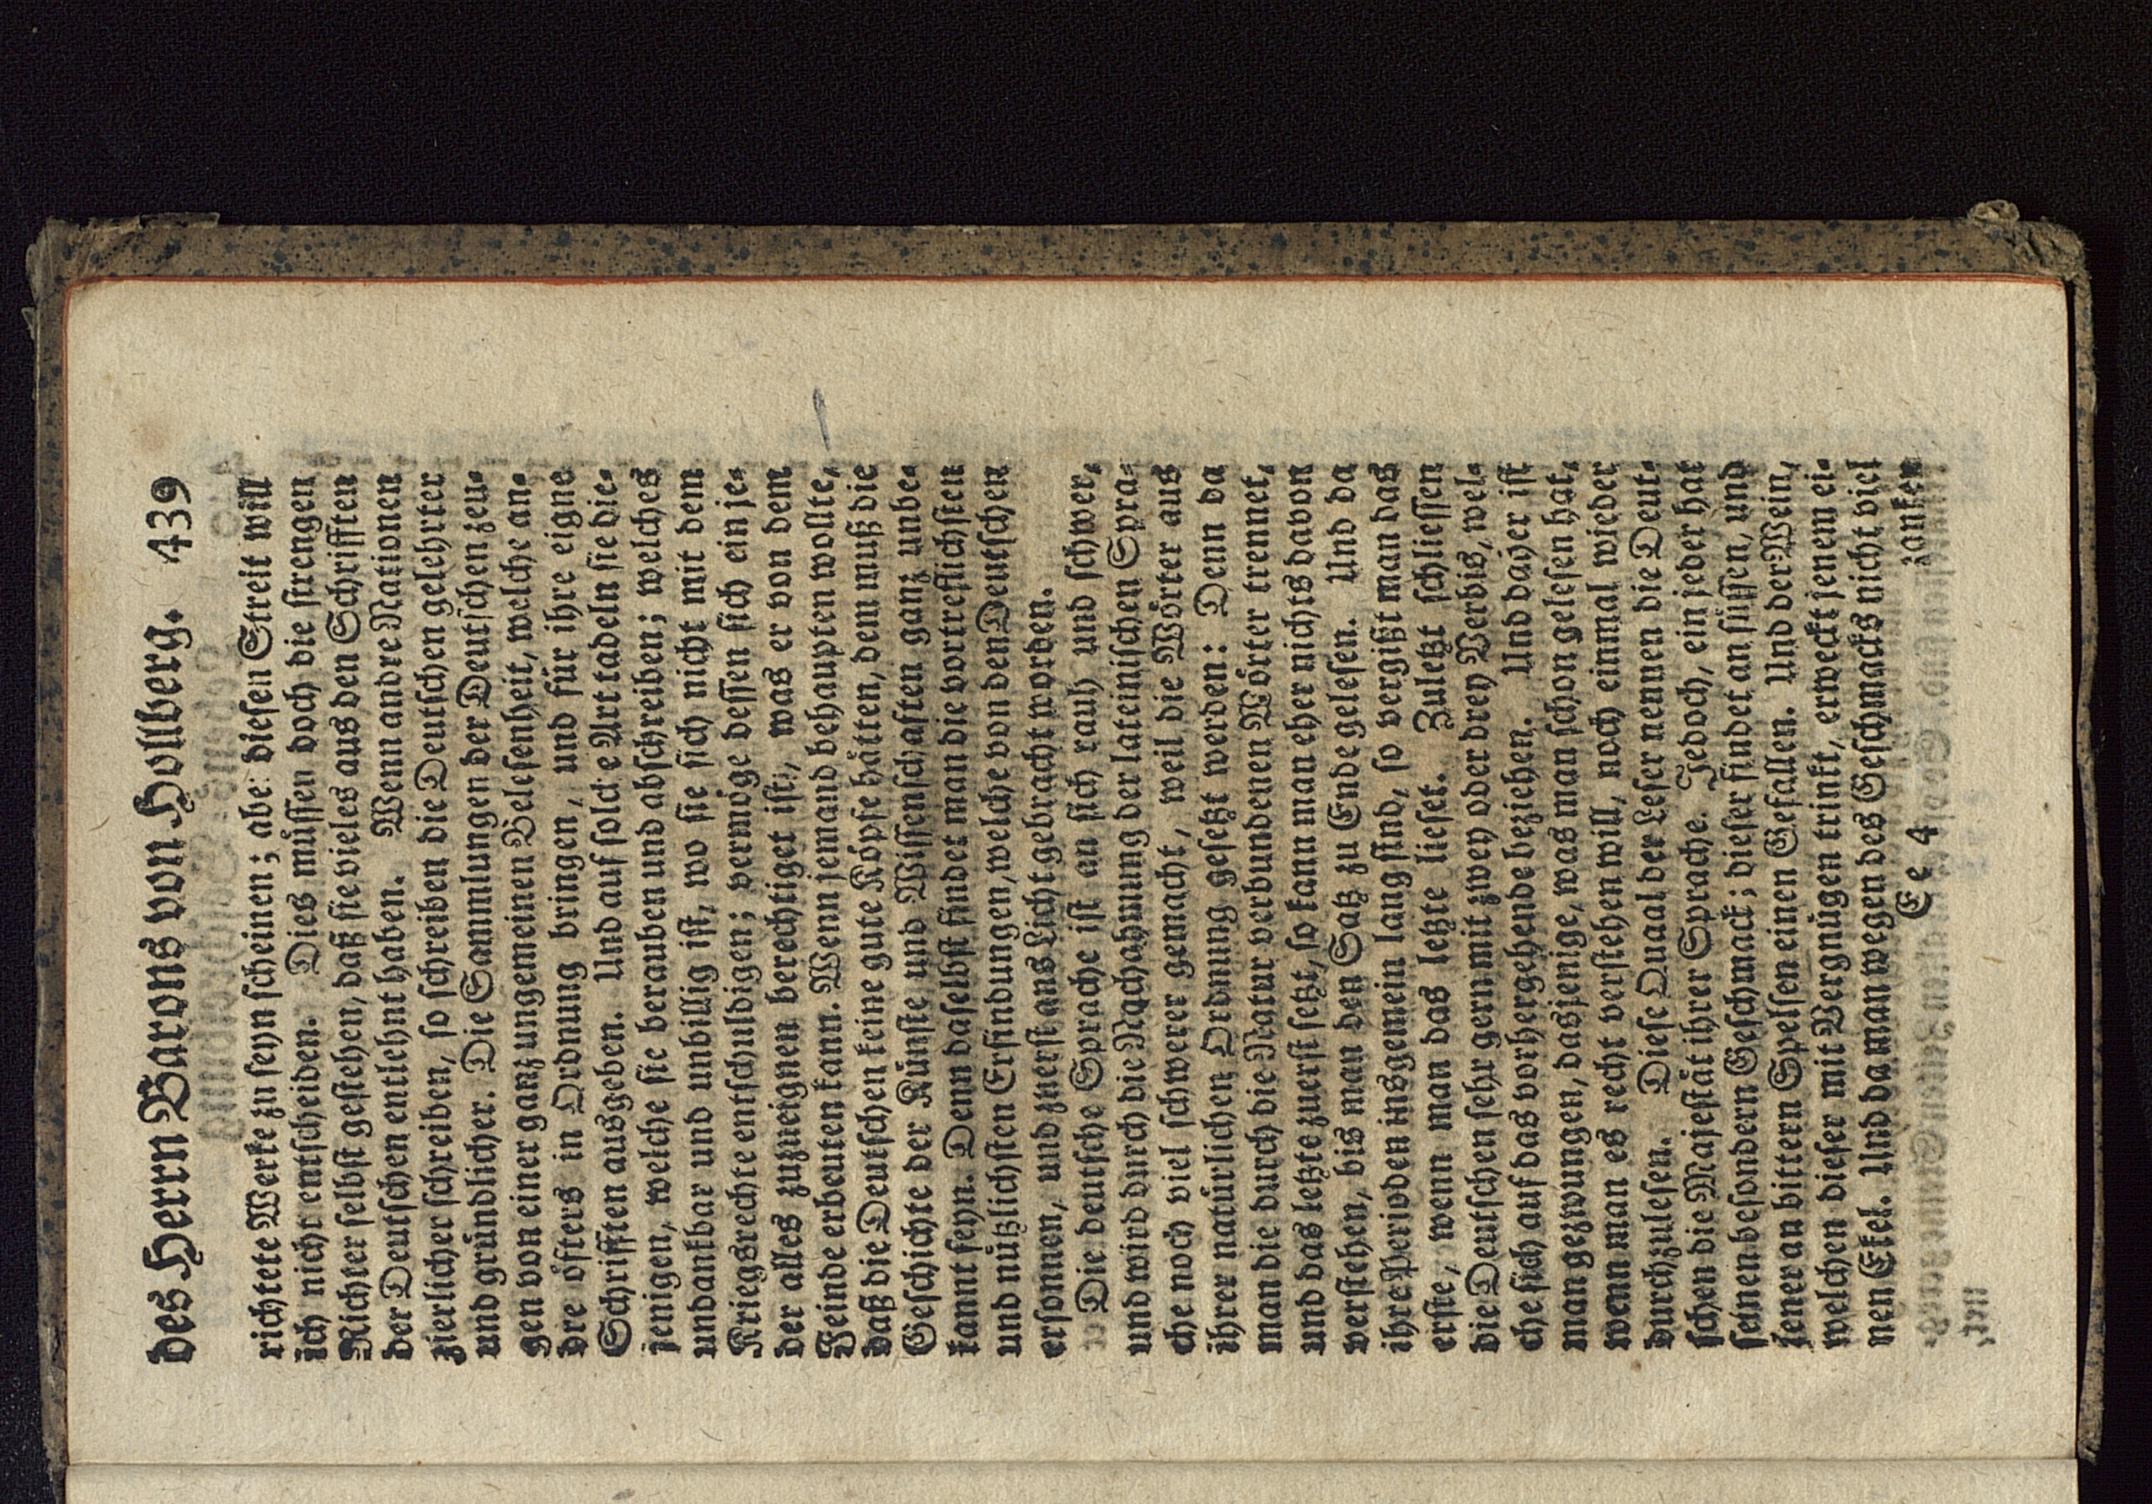 des Herrn Barons von Hollberg. 439
richtete Werke zu seyn scheinen; aber diesen Streit will
ich nicht entscheiden. Dies müssen doch die strengen
Richter selbst gestehen, daß sie vieles aus den Schrifften
der Deutschen entlehnt haben. Wenn andre Nationen
zierlicher schreiben, so schreiben die Deutschen gelehrter
und gründlicher. Die Sammlungen der Deutschen zeu-
gen von einer ganz ungemeinen Belesenheit, welche an-
dre öfters in Ordnung bringen, und für ihre eigne
Schrifften ausgeben. Und auf solche Art tadeln sie die-
jenigen, welche sie berauben und abschreiben; welches
undankbar und unbillig ist, wo sie sich nicht mit dem
Kriegsrechte entschuldigen; vermöge dessen sich ein je-
der alles zuzueignen berechtiget ist, was er von dem
Feinde erbeuten kann. Wenn jemand behaupten wollte,
daß die Deutschen keine gute Köpfe hätten, dem muß die
Geschichte der Künste und Wissenschaften ganz unbe-
kannt seyn. Denn daselbst findet man die vortreflichsten
und nützlichsten Erfindungen, welche von den Deutschen
ersonnen, und zuerst ans Licht gebracht worden.
Die deutsche Sprache ist an sich rauh und schwer,
und wird durch die Nachahmung der lateinischen Spra-
che noch viel schwerer gemacht, weil die Wörter aus
ihrer natürlichen Ordnung gesetzt werden: Denn da
man die durch die Natur verbundenen Wörter trennet,
und das letzte zuerst setzt, so kann man eher nichts davon
verstehen, bis man den Satz zu Ende gelesen. Und da
ihre Perioden insgemein lang sind, so vergißt man das
erste, wenn man das letzte lieset. Zuletzt schliessen
die Deutschen sehr gern mit zwey oder drey Verbis, wel-
che sich auf das vorhergehende beziehen. Und daher ist
man gezwungen, dasjenige, was man schon gelesen hat,
wenn man es recht verstehen will, noch einmal wieder
durchzulesen. Diese Quaal der Leser nennen die Deut-
schen die Majestät ihrer Sprache. Jedoch, ein jeder hat
seinen besondern Geschmack; dieser findet an süssen, und
jener an bittern Speisen einen Gefallen. Und der Wein,
welchen dieser mit Vergnügen trinkt, erweckt jenem ei-
nen Ekel. Und da man wegen des Geschmacks nicht viel
Ee 4 zanken